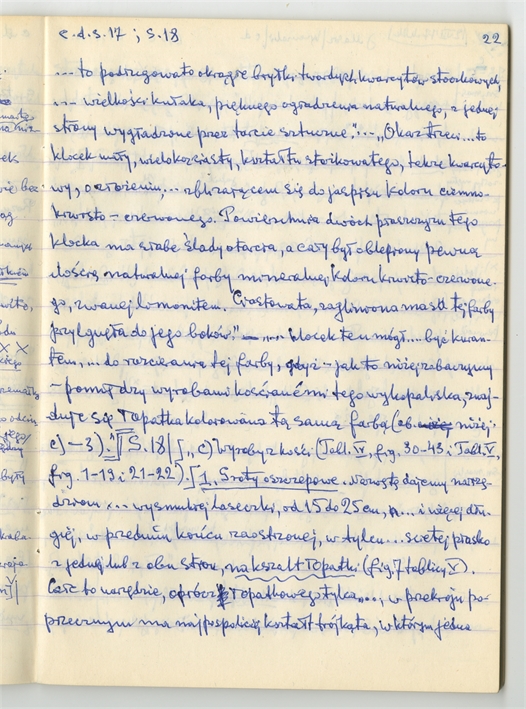 c.d.s. 17 ; S.18 22
... to podługowato okrągłe bryłki twardych kwarcytów stockowych,
... wielkości kułaka, pięknego ogradzenia naturalnego, z jednej
strony wygładzone przez tarcie sztuczne." ... "Okaz trzeci ... to
klocek mały, wielokrzciasty, kształtu stożkowatego, także kwarcyto-
wy, o złożeniu, ... zbliżającem się do jaspisu koloru ciemno-
krwisto-czerwonego. Powierzchnia dwóch płaszczyzn tego
klocka ma słabe ślady otarcia, a cały był oblepiony pewną
ilością naturalnej farby mineralnej koloru krwisto-czerwone-
go, zwanej limonitem. Ciastowata, zagliniona masa tej farby
przylgnęła do jego boków." — "... klocek ten mógł ... być kwan-
tem, ... do rozcierania tej farby, gdyż - jak to niżej zobaczymy
- pomiędzy wyrobami kościanémi tego wykopaliska, znaj-
duje się łopatka kolorowana tą samą farbą (ob. niżej
c) - 3)." [S.18] "c) Wyroby z kości (Tabl. IV, fig. 30-43 i Tabl. V,
fig. 1-19 i 21-22). [1. Groty oszczepowe. Nazwę dajemy narzę-
dziom ... wysmukłej laseczki, od 15 do 25 cm, ... i więcej dłu-
giéj, w przednim końcu zaostrzonej, w tylcu ... ściętej płasko
z jednej lub z obu stron, na kształt łopatki (fig. 7 tablicy V).
Całe to narzędzie, oprócz łopatkowego tylca ..., w przekroju po-
przecznym ma najpospoliciej kształt trójkąta, w którym jedna